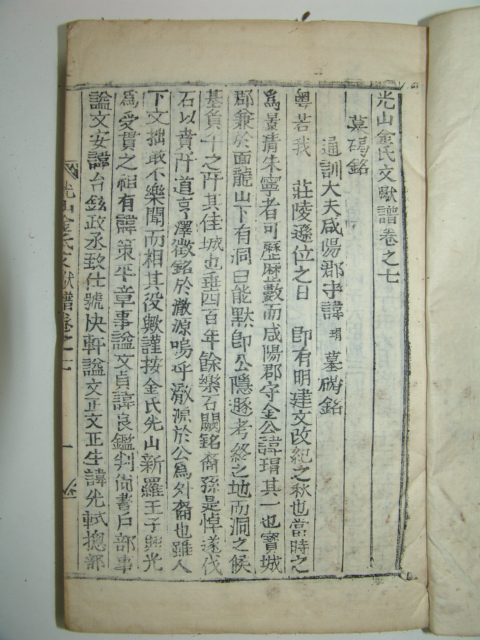 光山金氏文獻譜卷之七
墓碣銘
通訓大夫咸陽郡守諱珺墓碣銘
粤若我　莊陵遜位之日　卽有明建文改紀之秋也當時之
爲景淸朱寧者可歷歷數而咸陽郡守金公諱珺其一也寶城
郡兼於面龍山下有洞曰能默卽公隱遯考終之地而洞之後
基負子之阡其佳城也垂四百年餘樂石闕銘裔孫是悼遂伐
石以賁阡道京澤徵銘於澈源嗚呼澈源於公爲外裔也雖人
下文拙敢不樂聞而相其役歟謹按金氏先山新羅王子興光
爲受貫之祖有諱策平章事謚文貞諱良鑑判尙書戶部事
謚文安諱台鉉政丞致仕號快軒謚文正文正生諱光軾摠部
光山金氏文獻譜卷之七
一